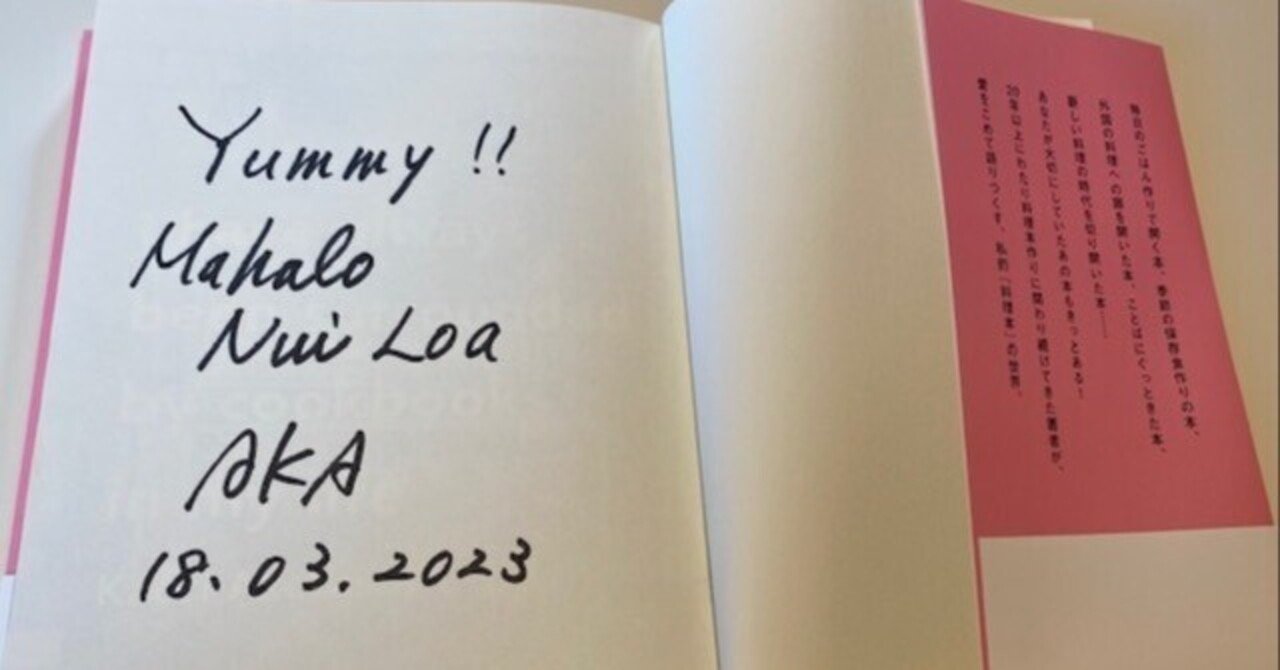 Yummy !!
Mahalo
Nui Loa
AKA
18.03.2023
毎日のごはん作りで開く本、季節の保存食作りの本、
外国の料理への扉を開いた本、ことばにぐっときた本、
新しい料理の時代を切り開いた本……
あなたが大切にしていたあの本もきっとある！
20年以上にわたり料理本作りに関わり続けてきた著者が、
愛をこめて語りつくす、私的「料理本」の世界。